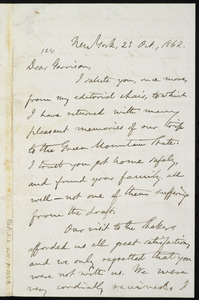 New York, 23 Oct, 1862.
Dear Garrison,
I salute you, once more,
from my editorial chair, to which
I have returned with many
pleasant memories of our trip
to the Green Mountain State.
I trust you got home safely,
and found your family all
well — not one of them suffering
from the draft.
Our visit to the Shakers
afforded us all great satisfaction,
and we only regretted that you
were not with us. We were
very cordially received. I